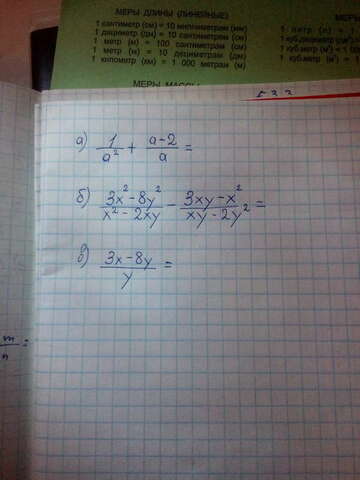 МЕРЫ ДЛИНЫ (ЛИНЕЙНЫЕ)
1 сантиметр (см) = 10 миллиметрам (мм)
1 дециметр (дм) = 10 сантиметрам (см)
1 метр (м) = 100 сантиметрам (см)
1 метр (м) = 10 дециметрам (дм)
1 километр (км) = 1 000 метрам (м)
МЕРЫ МАССЫ
МЕРЫ
1 литр (л) = 1
1 куб.дециметр (дм³)
1 куб.метр (м³) = 1
1 куб.метр (м³) = 1
а) 1/a² + a-2/a =
б) 3x²-8y²/x²-2xy - 3xy-x²/xy-2y² =
в) 3x-8y/y =
m/n =